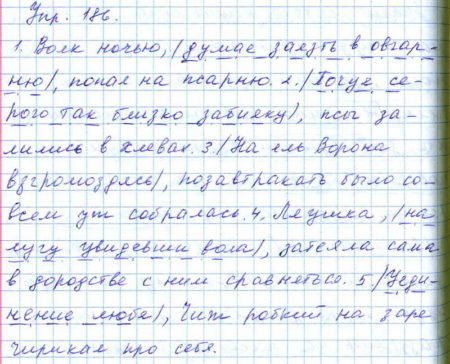 Упр. 186.
1. Волк ночью, /думая залезть в овчар-
ню/, попал на псарню. 2. /Почуя се-
рого так близко забияку/, псы за-
лились в хлевах. 3 /На ель Ворона
взгромоздясь/, позавтракать было со-
всем уж собралась. 4. Лягушка, /на
лугу увидевши вола/, затеяла сама
в дородстве с ним сравняться. 5 /Уеди-
нение любя/, Чиж робкий на заре
чирикал про себя.